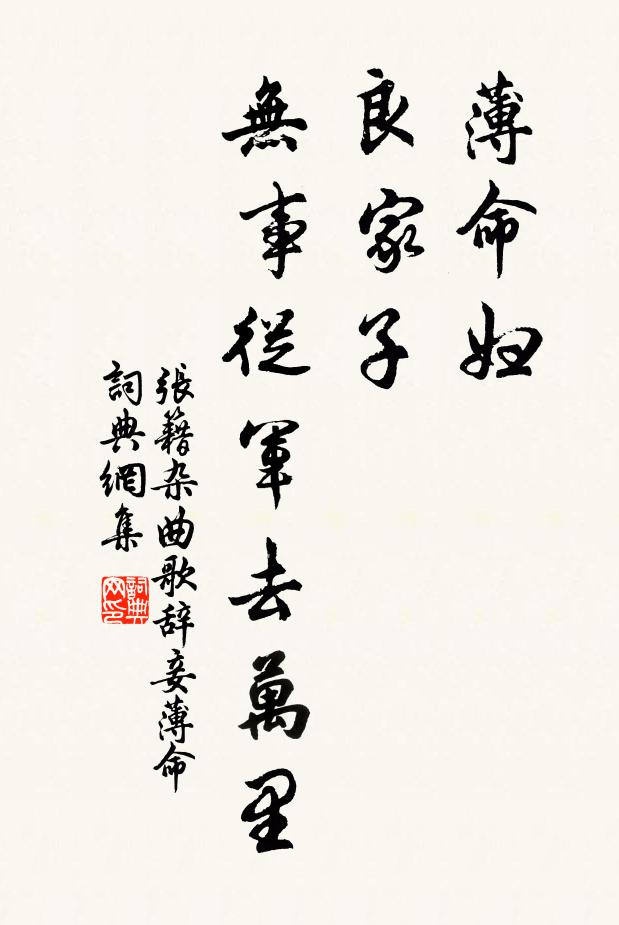 薄命婦
良家子
無事從軍去萬里
張籍杂曲歌辞妾薄命
詞典網集
詞典网印